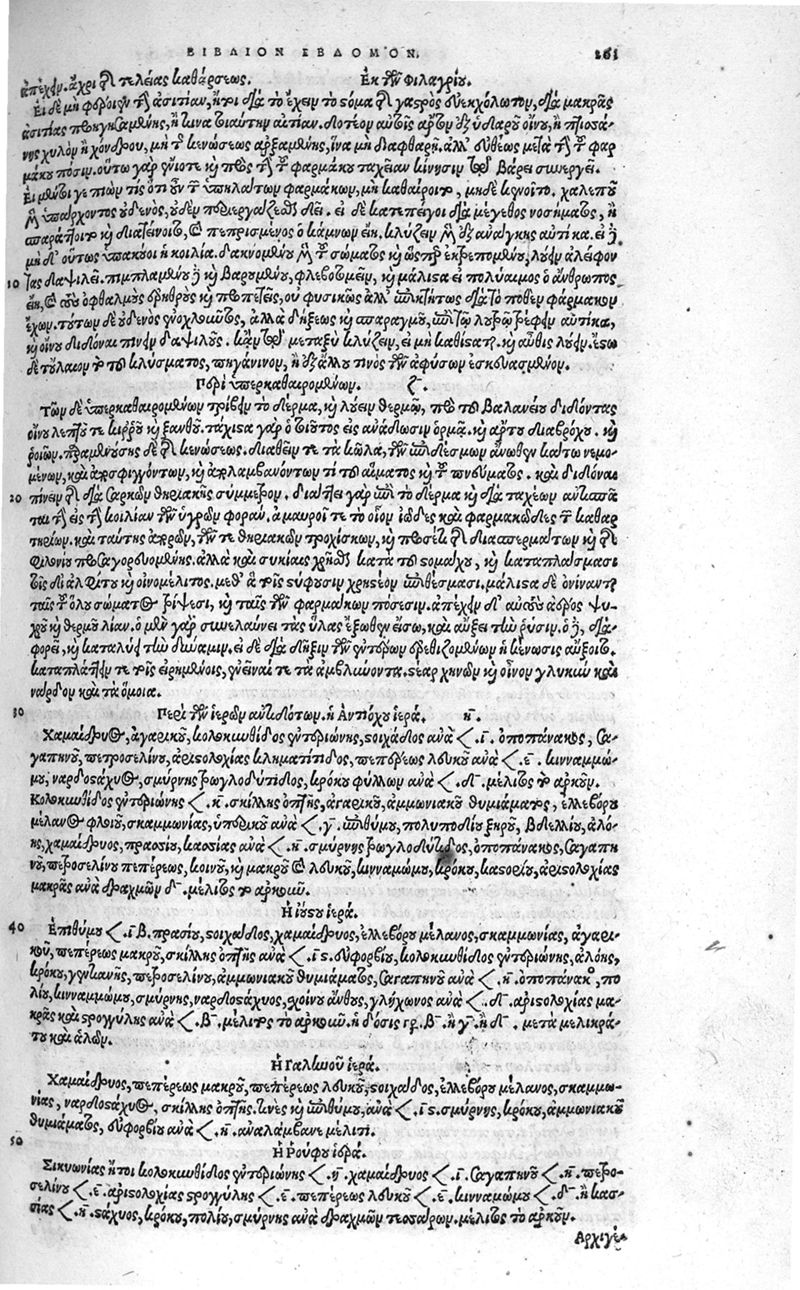 ΒΙΒΛΙΟΝ ΕΒΔΟΜΟΝ. 261
ἀπέχειν. ἄχρι τῆς τελείας καθάρσεως. Ἐκ τῶν Φιλαγρίου.
Εἰ δὲ μὴ φέροιεν τὴν ἀσιτίαν, ἤτοι διὰ τὸ ἔχειν τὸ στόμα τῆς γαστρὸς διὰ μακρᾶς
ἀσιτίας προηγησαμένης, ἢ τινα τοιαύτην αἰτίαν. δοτέον αὐτοῖς ἄρτον ἐξ ὑδαροῦ οἴνου, ἢ πτισά-
νης χυλὸν ἢ χόνδρου, μὴ τῆς κενώσεως ἀρξαμένης, ἵνα μὴ διαφθαρῇ. ἀλλ' εὐθέως μετὰ τὴν τοῦ φαρ
μάκου πόσιν. οὕτω γὰρ ἐνίοτε καὶ πρὸς τὴν τοῦ φαρμάκου ταχεῖαν κίνησιν τῷ βάρει συνεργεῖ.
Εἰ μέντοι γε πιών τις ὁτιοῦν τῶν ὑπηλάτων φαρμάκων, μὴ καθαίροιτο, μηδὲ κενοῖτο. χαλεποῦ
μὲν ὑπάρχοντος οὐδενὸς, οὐδὲν περιεργάζεσθαι δεῖ. εἰ δὲ κατεπείγοι διὰ μέγεθος νοσήματος, ἢ
σπαράττοιτο καὶ διατείνοιτο, καὶ πεπρισμένος ὁ κάμνων εἴη. κλύζειν μὲν ἐξ ἀνάγκης αὐτίκα. εἰ δὲ
μὴ δ' οὕτως ὑπακούοι ἡ κοιλία. δακνομένου μὲν τοῦ σώματος καὶ ὥσπερ λούειν ἀλείφον
10 τας δαψιλεῖ. πιμπλαμένου δὲ καὶ βαρουμένου, φλεβοτομεῖν, καὶ μάλιστα εἰ πολύαιμος ὁ ἄνθρωπος
εἴη, καὶ τοὺς ὀφθαλμοὺς ἐρυθροὺς καὶ προπετεῖς, οὐ φυσικῶς ἀλλ' ἐπικτήτως διὰ τὸ ποθὲν φάρμακον
ἔχων. τούτων δὲ οὐδενὸς ἐνοχλοῦντος, ἀλλὰ δήξεως καὶ σπαραγμοῦ, ἐπὶ τῷ λουτρῷ τρέφειν αὐτίκα,
καὶ οἴνου διδόναι πίνειν δαψιλοῦς. κἂν τῷ μεταξὺ κλύζειν, εἰ μὴ καθίσταται. καὶ αὖθις λούειν. ἔστω
δὲ τὸ ἔλαιον τὸ τοῦ κλύσματος, πηγάνινον, ἢ ἐξ ἄλλου τινὸς τῶν ἀφύσων ἐσκευασμένον.
Περὶ ὑπερκαθαιρομένων. ζ.
Τῶν δὲ ὑπερκαθαιρομένων τρίβειν τὸ δέρμα, καὶ λούειν θερμῷ, πρὸ τοῦ βαλανείου διδόντας
οἴνου λεπτοῦ τε κιρροῦ καὶ ξανθοῦ. τάχιστα γὰρ ὁ τοιοῦτος εἰς ἀνάδοσιν ὁρμᾷ. καὶ ἄρτου διαβρόχου. καὶ
ῥοιῶν. παραμενούσης δὲ τῆς κενώσεως. διαδεῖν τε τὰ κῶλα, τῶν ἐπιδέσμων ἄνωθεν κάτω νεμο-
μένων, καὶ ἀποσφιγγόντων, καὶ ἀπολαμβανόντων τι τοῦ αἵματος καὶ τοῦ πνεύματος. καὶ διδόναι
20 πίνειν τῆς διὰ σαρκῶν θηριακῆς σύμμετρον. διαδίδει γὰρ ἐπὶ τὸ δέρμα καὶ διὰ ταχέων ἀντισπᾶ
ται τὴν εἰς τὴν κοιλίαν τῶν ὑγρῶν φοράν. ἀμαυροῖ τε τὸ οἷον ἰῶδες καὶ φαρμακῶδες τοῦ καθαρ
τηρίου. καὶ ταύτης ἀπορῶν, τῶν τε θηριακῶν τροχίσκων, καὶ προσέτι τῆς διὰ σπερμάτων καὶ τῆς
Φίλωνος προσαγορευομένης. ἀλλὰ καὶ σικύαις χρῆσθαι κατὰ τοῦ στομάχου, καὶ καταπλάσμασι
τοῖς δι' ἀλφίτου καὶ οἰνομέλιτος. μεθ' ἃ τοῖς εὔφυσιν χρηστέον ἐπιθέμασι. μάλιστα δὲ ὀνίνανται
ταῖς τοῦ ὅλου σώματος τρίψεσι, καὶ ταῖς τῶν φαρμάκων πόσεσιν. ἀπέχειν δ' αὐτοὺς ἀέρος ψυ-
χροῦ καὶ θερμοῦ λίαν. ὁ μὲν γὰρ συνελαύνει τὰς ὕλας ἔξωθεν εἴσω, καὶ αὔξει τὴν ῥύσιν. ὁ δὲ, δια-
φορεῖ, καὶ καταλύει τὴν δύναμιν. εἰ δὲ διὰ δῆξιν τῶν ἐντέρων ἐρεθιζομένων ἡ κένωσις αὔξοιτο.
καταπλάττειν τε τοῖς εἰρημένοις, ἐνεῖναί τε τὰ ἀμβλύνοντα. στέαρ χηνῶν καὶ οἶνον γλυκὺν καὶ
νάρδον καὶ τὰ ὅμοια.
30 Περὶ τῶν ἱερῶν ἀντιδότων. ἡ Ἀντιόχου ἱερά. η.
Χαμαίδρυος, ἀγαρικοῦ, κολοκυνθίδος ἐντεριώνης, στοιχάδος ἀνὰ < .ι. ὀποπάνακος, σα-
γαπηνοῦ, πετροσελίνου, ἀριστολοχίας κληματίτιδος, πεπέρεως λευκοῦ ἀνὰ < .ε. κινναμώ-
μου, ναρδοστάχυος, σμύρνης τρωγλοδύτιδος, κρόκου φύλλων ἀνὰ < .δ. μέλιτος τὸ ἀρκοῦν.
Κολοκυνθίδος ἐντεριώνης < .κ. σκίλλης ὀπτῆς, ἀγαρικοῦ, ἀμμωνιακοῦ θυμιάματος, ἐλλεβόρου
μέλανος φλοιοῦ, σκαμμωνίας, ὑπερικοῦ ἀνὰ < .γ. ἐπιθύμου, πολυποδίου ξηροῦ, βδελλίου, ἀλό-
ης, χαμαίδρυος, πρασίου, κασσίας ἀνὰ < .η. σμύρνης τρωγλοδύτιδος, ὀποπάνακος, σαγαπη
νοῦ, πετροσελίνου πεπέρεως, κοινοῦ, καὶ μακροῦ καὶ λευκοῦ, κινναμώμου, κρόκου, καστορίου, ἀριστολοχίας
μακρᾶς ἀνὰ δραχμῶν δ. μέλιτος τὸ ἀρκοῦν.
Ἡ Ἰούστου ἱερά.
40 Ἐπιθύμου < .ιβ. πρασίου, στοιχάδος, χαμαίδρυος, ἐλλεβόρου μέλανος, σκαμμωνίας, ἀγαρι-
κοῦ, πεπέρεως μακροῦ, σκίλλης ὀπτῆς ἀνὰ < .ις. εὐφορβίου, κολοκυνθίδος ἐντεριώνης, ἀλόης,
κρόκου, γεντιανῆς, πετροσελίνου, ἀμμωνιακοῦ θυμιάματος, σαγαπηνοῦ ἀνὰ < .η. ὀποπάνακος, πο
λίου, κινναμώμου, σμύρνης, ναρδοστάχυος, σχοίνου ἄνθους, γλήχωνος ἀνὰ < .δ. ἀριστολοχίας μα-
κρᾶς καὶ στρογγύλης ἀνὰ < .β. μέλιτος τὸ ἀρκοῦν. ἡ δόσις γρ. β. ἢ γ. ἢ δ. μετὰ μελικρά-
του καὶ ἁλῶν.
Ἡ Γαληνοῦ ἱερά.
Χαμαίδρυος, πεπέρεως μακροῦ, πεπέρεως λευκοῦ, στοιχάδος, ἐλλεβόρου μέλανος, σκαμμω-
νίας, ναρδοστάχυος, σκίλλης ὀπτῆς. τινὲς καὶ ἐπιθύμου, ἀνὰ < .ις. σμύρνης, κρόκου, ἀμμωνιακοῦ
θυμιάματος, εὐφορβίου ἀνὰ < .η. ἀναλάμβανε μέλιτι.
50 Ἡ Ῥούφου ἱερά.
Σικυωνίας ἤτοι κολοκυνθίδος ἐντεριώνης < .η. χαμαίδρυος < .ι. σαγαπηνοῦ < .η. πετρο-
σελίνου < .ε. ἀριστολοχίας στρογγύλης < .ε. πεπέρεως λευκοῦ < .ε. κινναμώμου < .δ. ἢ κασ-
σίας < .η. στάχυος, κρόκου, πολίου, σμύρνης ἀνὰ δραχμῶν τεσσάρων. μέλιτος τὸ ἀρκοῦν.
Ἀρχιγέ-